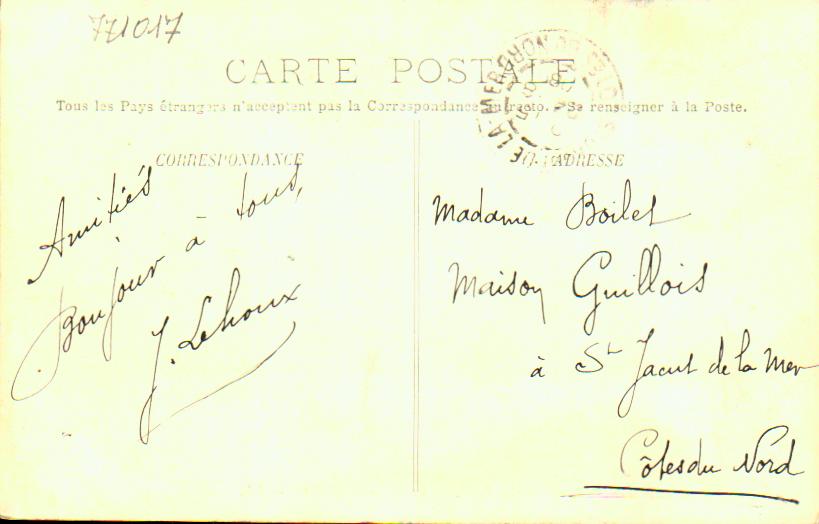 771017
CARTE POSTALE
Tous les Pays étrangers n'acceptent pas la Correspondance au recto. - Se renseigner à la Poste.
CORRESPONDANCE
Amitiés
Bonjour à tous,
J. Lehoux
ADRESSE
Madame Boilet
Maison Guillois
à St Jacut de la Mer
Côtes du Nord
LA-MER